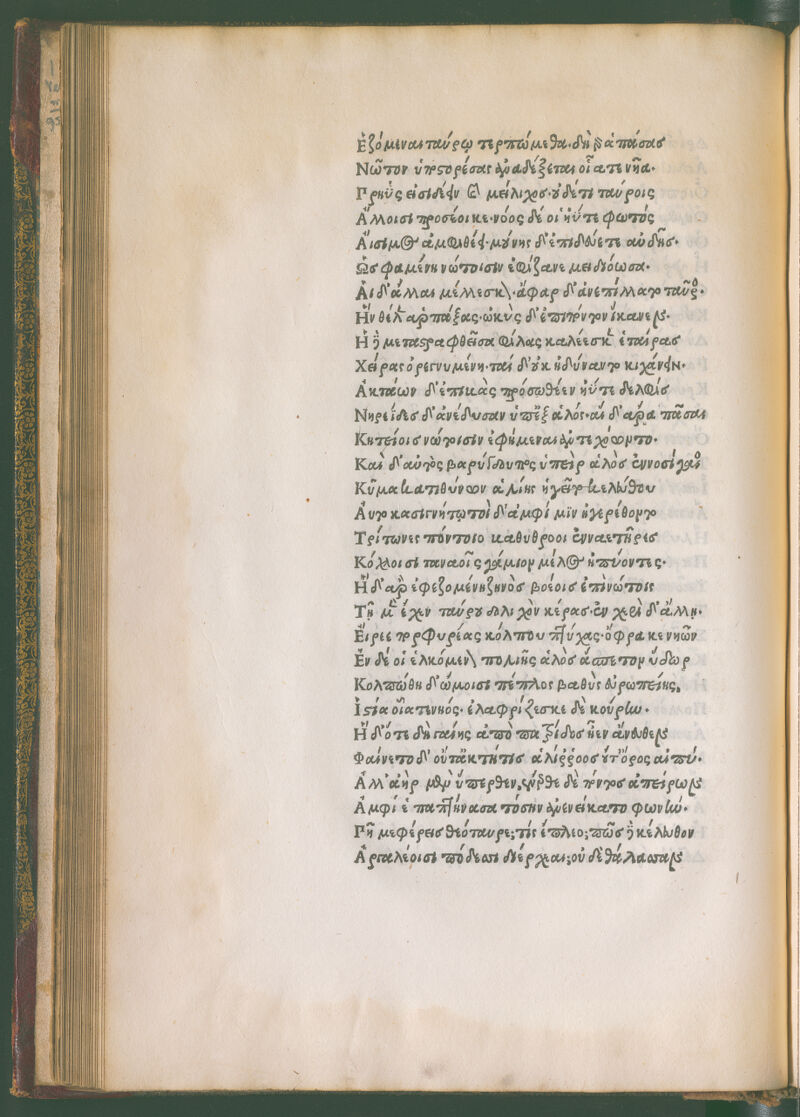 Ἑζόμεναι ταύρῳ τερπώμεθα· δὴ γὰρ ἁπάσας
Νῶτον ὑποστορέσας ἀναδέξεται οἷα τε νῆα·
Πρηὺς εἰσιδέειν καὶ μείλιχος· οὐδέτι ταύροις
Ἄλλοισι προσέοικε· νόος δέ οἱ ἠύτε φωτὸς
Αἴσιμος ἀμφιθέει· μούνης δ' ἐπιδεύετε αὐδῆς·
Ὣς φαμένη νώτοισιν ἐφίζανε μειδιόωσα·
Αἱ δ' ἄλλαι μέλλεσκον· ἄφαρ δ' ἀνεπίλλατο ταῦρος·
Ἣν θέλεν ἁρπάξας· ὠκὺς δ' ἐπὶ πόντον ἵκανεν·
Ἡ δὲ μεταστραφθεῖσα φίλας καλέεσκεν ἑταίρας
Χεῖρας ὀρεγνυμένη· ταὶ δ' οὐκ ἠδύναντο κιχάνειν·
Ἀκτάων δ' ἐπιβὰς πρόσωθέεν ἠύτε δελφίς
Νηρείδες δ' ἀνέδυσαν ὑπὲξ ἁλός· αἱ δ' ἄρα πᾶσαι
Κητείοις νώτοισιν ἐφήμεναι ἐντεχόωντο·
Καὶ δ' αὐτὸς βαρύγδουπος ὑπεὶρ ἁλὸς ἐννοσίγαιος
Κῦμα κατιθύνων ἁλίης ἡγεῖτο κελεύθου
Αὐτοκασιγνήτῳ τοὶ δ' ἀμφί μὶν ἠγερέθοντο
Τρίτωνες πόντοιο βαθύθροοι ἐνναετῆρες
Κόχλοισι ταναοῖς γάμιον μέλος ἠπύοντες·
Ἡ δ' ἄρ ἐφεζομένη ζηνὸς βοέοις ἐπὶ νώτοις
Τῇ μὲν ἔχεν ταύρου δολιχὸν κέρας· ἐν χερὶ δ' ἄλλῃ·
Εἴρυε πορφυρέας κόλπου πτύχας· ὄφρα κενηῶν
Ἐν δέ οἱ ἑλκόμενον πολιῆς ἁλὸς ἄσπετον ὕδωρ
Κολπώθη δ' ὤμοισι πέπλος βαθὺς εὐρωπείης,
Ἱστία οἷα τενηός· ἐλαφρίζεσκε δὲ κούρην·
Ἡ δ' ὅτε δὴ γαίης ἀπὸ πατρίδος ἦεν ἄνευθεν
Φαίνετο δ' οὔτ ἀκτήτις ἁλίρροος οὔτ' ὄρος αἰπύ·
Ἀλλ' ἀὴρ μὲν ὕπερθεν, ἔνερθε δὲ πόντος ἀπείρων
Ἀμφί ἑ παπτήνασα τόσην ἀνενείκατο φωνήν·
Πῆ μεφέρεις θεόταυρε; τίς ἔπλεο; πῶς δὲ κέλευθον
Ἀργαλέοισι πόδεσσι διέρχεαι; οὐ δὲ θάλασσαν